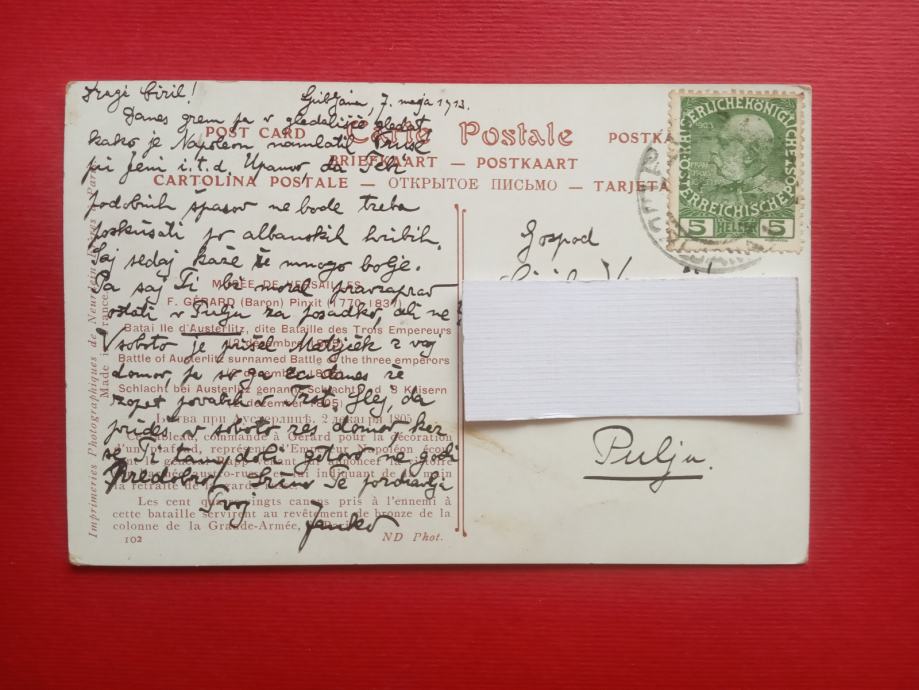 Dragi Ciril!
Ljubljana, 7. maja 1913.
Danes grem pa v gledališče gledat
kako je Napoleon namlatil Pruse
pri Jeni i.t.d. Upamo, da Tebi
podobnih špasov ne bode treba
poskušati po albanskih hribih.
Saj sedaj kaže že mnogo bolje.
Pa saj Ti bi moral pravzaprav
ostati v Pulju za posadko, ali ne
V soboto je prišel Matjček z
domov pa so ga za danes že
zopet povabili v Trst. Glej, da
prideš v soboto res domov, ker
se Ti tam doli gotovo ne godi
predobro! Srčno Te pozdravlja
Tvoj
Janko
POST CARD Carte Postale POSTKA
BRIEFKAART — POSTKAART
CARTOLINA POSTALE — ОТКРЫТОЕ ПИСЬМО — TARJETA
MUSÉE DE VERSAILLES
F. GÉRARD (Baron) Pinxit (1770-1837)
Bataille d'Austerlitz, dite Bataille des Trois Empereurs
Battle of Austerlitz surnamed Battle of the three emperors
Schlacht bei Austerlitz genannt Schlacht d. 3 Kaisern
(2 dezember 1805)
Битва при Аустерлицѣ, 2 декабря 1805
Ce tableau, commandé à Gérard pour la décoration
d'un plafond, représente l'Empereur Napoléon
le général Rapp venant lui annoncer la victoire
indiquant de la main
la retraite de la garde
Les cent quatre-vingts canons pris à l'ennemi à
cette bataille servirent au revêtement de bronze de la
colonne de la Grande-Armée, à Paris.
102
ND Phot.
Imprimeries Photographiques de Neurdein frères — Paris
Made in France
Gospod
Pulju.
5 HELLER 5